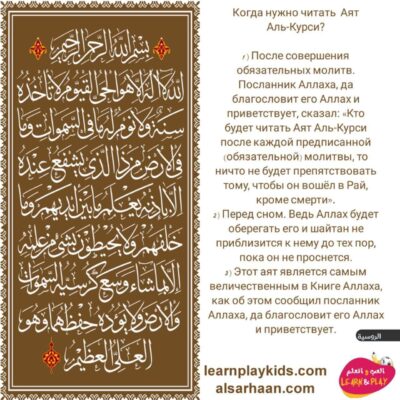 بسم الله الرحمن الرحيم
الله لا إله إلا هو الحي القيوم لا تأخذه
سنة ولا نوم له ما في السموات وما
في الأرض من ذا الذي يشفع عنده
إلا بإذنه يعلم ما بين أيديهم وما
خلفهم ولا يحيطون بشيء من علمه
إلا بما شاء وسع كرسيه السموات
والأرض ولا يؤوده حفظهما وهو
العلي العظيم
Когда нужно читать Аят
Аль-Курси?
1) После совершения
обязательных молитв.
Посланник Аллаха, да
благословит его Аллах и
приветствует, сказал: «Кто
будет читать Аят Аль-Курси
после каждой предписанной
(обязательной) молитвы, то
ничто не будет препятствовать
тому, чтобы он вошёл в Рай,
кроме смерти».
2) Перед сном. Ведь Аллах будет
оберегать его и шайтан не
приблизится к нему до тех пор,
пока он не проснется.
3) Этот аят является самым
величественным в Книге Аллаха,
как об этом сообщил посланник
Аллаха, да благословит его Аллах
и приветствует.
الروسية
العب و اتعلم
LEARN & PLAY
learnplaykids.com
alsarhaan.com